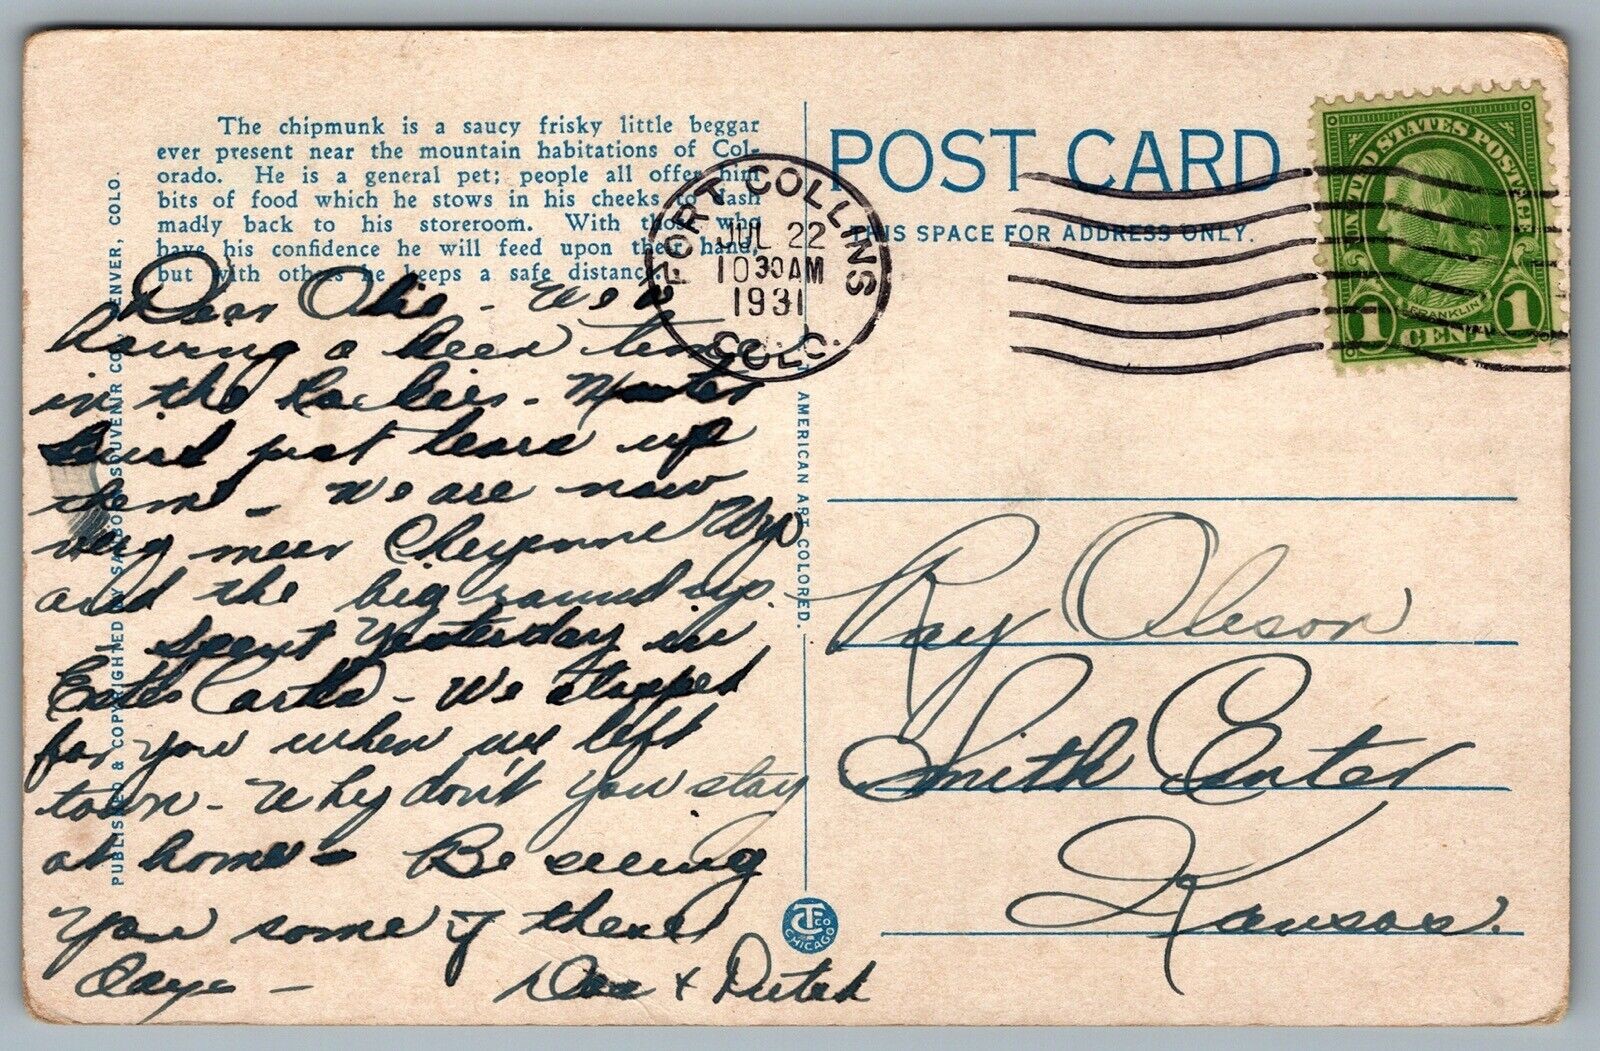 The chipmunk is a saucy frisky little beggar
ever present near the mountain habitations of Col-
orado. He is a general pet; people all offer him
bits of food which he stows in his cheeks to dash
madly back to his storeroom. With those who
have his confidence he will feed upon their hand,
but with others he keeps a safe distance.
Dear Olie - We
having a keen time
in the Rockies -
just tears up
them - We are now
very near Cheyenne Wyo
and the big round up.
Spent yesterday in
Estes Park - We stopped
for you when we left
town - Why don't you stay
at home - Be seeing
you some of these
Days -
Doc + Dutch
PUBLISHED & COPYRIGHTED BY SANBORN SOUVENIR CO., DENVER, COLO.
FORT COLLINS
JUL 22
10 30 AM
1931
COLO.
POST CARD
THIS SPACE FOR ADDRESS ONLY.
UNITED STATES POSTAGE
FRANKLIN
1 CENT 1
AMERICAN ART COLORED.
CT CO
CHICAGO
Ray Oleson
Smith Center
Kansas.